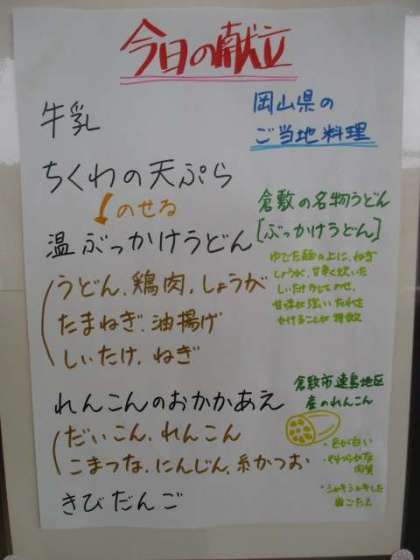 今日の献立
岡山県の
ご当地料理
牛乳
ちくわの天ぷら
のせる
温ぶっかけうどん
うどん、鶏肉、しょうが
たまねぎ、油揚げ
しいたけ、ねぎ
倉敷の名物うどん
[ぶっかけうどん]
ゆでた麺の上に、ねぎ
しょうが、甘辛く炊いた
しいたけなどをのせ、
甘味が強いたれを
かけることが特徴
れんこんのおかかあえ
だいこん、れんこん
こまつな、にんじん、糸かつお
倉敷市連島地区
産のれんこん
・色が白い
・やわらかな
肉質
・シャキシャキした
歯ごたえ
きびだんご